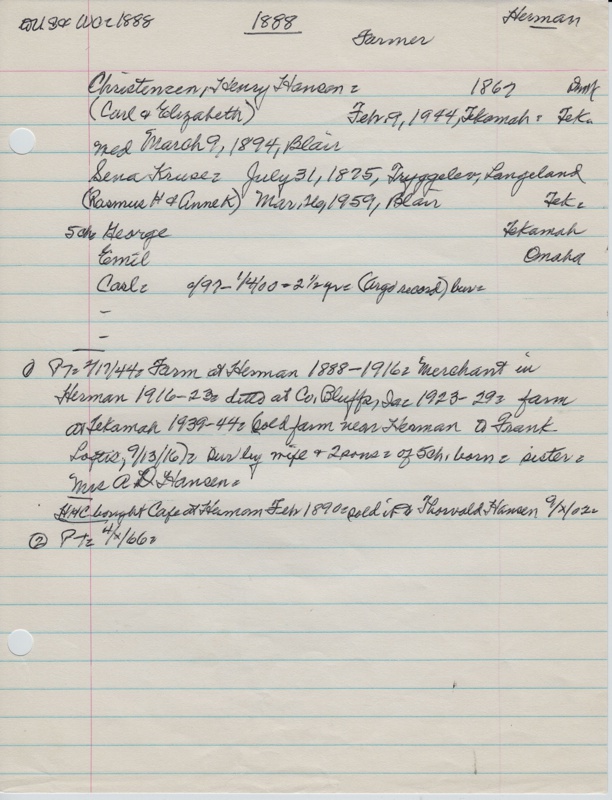 1888 Herman
Farmer
Christensen, Henry Hansen = 1867 Dmk
(Carl & Elizabeth) Feb. 9, 1944, Tekamah = Tek.
med March 9, 1894, Blair
Sena Kruse = July 31, 1875, Tryggelev, Langeland
(Rasmus H & Anne K) Mar. 1959, Blair Tek =
5ch George Tekamah
Emil Omaha
Carl = 9/97 - 1/4/00 = 2 1/2 yr = (Argo record) bur =
-
-
① PT = 2/17/44 = Farm at Herman 1888-1916 = Merchant in
Herman 1916-23 = ditto at Co. Bluffs, Ia = 1923-29 = farm
at Tekamah 1939-44 = (sold farm near Herman to Frank
Loftis, 9/13/16) = Sur by wife & 2 sons = of 5 ch. born = sister =
Mrs A D Hansen =
HHC bought Cafe at Herman Feb 1890 = sold it to Thorvald Hansen 9/X/02 =
② PT = 4/X/66 =